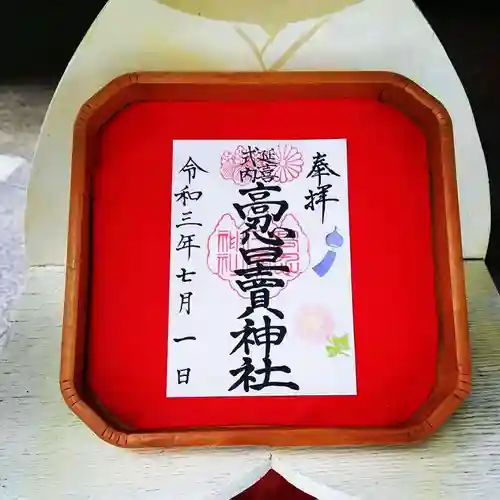 奉拝
延喜
式内
高忍日賣神社
令和三年七月一日